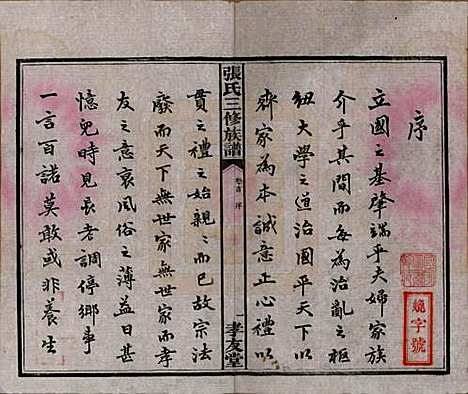 序
立國之基肇端乎夫婦家族
介乎其間而每為治亂之樞
紐大學之道治國平天下以
齊家為本誠意正心禮以
張氏三修族譜
卷首 序
一
孝友堂
貫之禮之始親親而已故宗法
廢而天下無世家無世家而孝
友之意衰風俗之薄益日甚
憶兒時見長老調停鄉事
一言百諾莫敢或非養生
字號